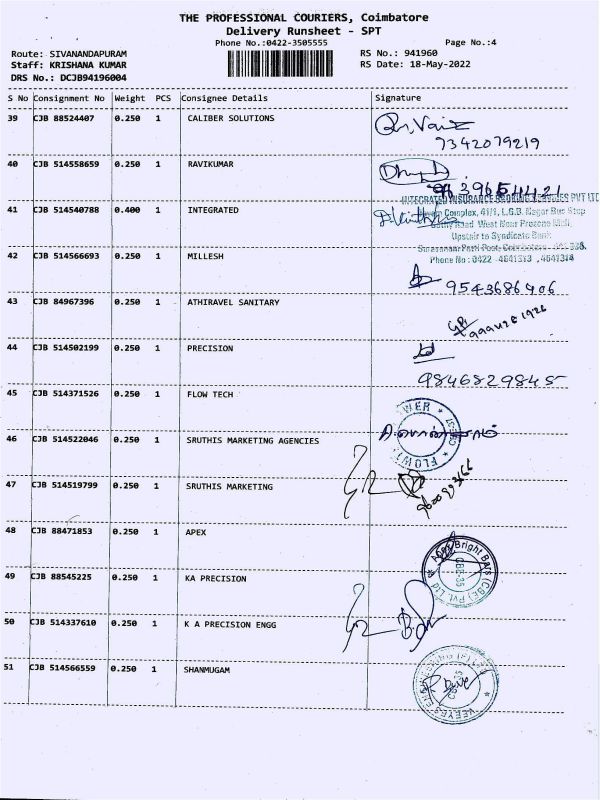 THE PROFESSIONAL COURIERS, Coimbatore
Delivery Runsheet - SPT
Phone No.:0422-3505555
Page No.:4
Route: SIVANANDAPURAM
RS No.: 941960
Staff: KRISHANA KUMAR
RS Date: 18-May-2022
DRS No.: DCJB94196004
S No Consignment No Weight PCS Consignee Details Signature
39 CJB 88524407 0.250 1 CALIBER SOLUTIONS
7342079219
40 CJB 514558659 0.250 1 RAVIKUMAR
INTEGRATED INSURANCE BROKING SERVICES PVT LTD
41 CJB 514540788 0.400 1 INTEGRATED
Complex, 41/1, L.G.B. Nagar Bus Stop
Road West Near Prozone Mall,
Upstair to Syndicate Bank
42 CJB 514566693 0.250 1 MILLESH
Phone No : 0422 - 4641313 , 4641314
9543686406
43 CJB 84967396 0.250 1 ATHIRAVEL SANITARY
44 CJB 514502199 0.250 1 PRECISION
9846829845
45 CJB 514371526 0.250 1 FLOW TECH
46 CJB 514522046 0.250 1 SRUTHIS MARKETING AGENCIES
47 CJB 514519799 0.250 1 SRUTHIS MARKETING
48 CJB 88471853 0.250 1 APEX
Bright Bars (CBE) Pvt. Ltd
49 CJB 88545225 0.250 1 KA PRECISION
50 CJB 514337610 0.250 1 K A PRECISION ENGG
51 CJB 514566559 0.250 1 SHANMUGAM